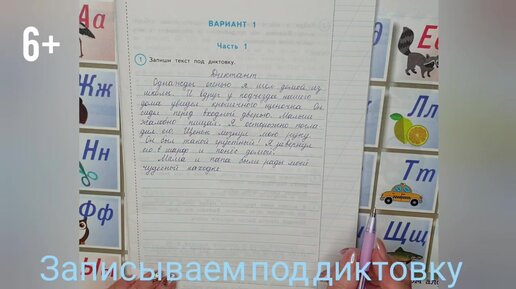 6+
ВАРИАНТ 1
Часть 1
1 Запиши текст под диктовку.
Диктант
Однажды осенью я шёл домой из
школы. И вдруг у подъезда нашего
дома увидел коричневого щеночка. Он
сидел перед входной дверью. Малыш
жалобно пищал. Я осторожно погла
дил его. Щенок лизнул мою руку.
Он был такой грустный! Я завернул
его в шарф и понёс домой.
Мама и папа были рады моей
чудесной находке
Аа
Жж
Нн
Фф
Ыы
Ее
Лл
Тт
Щщ
Записываем под диктовку